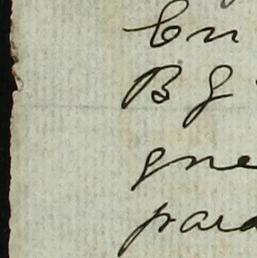 En
B g
gne
para